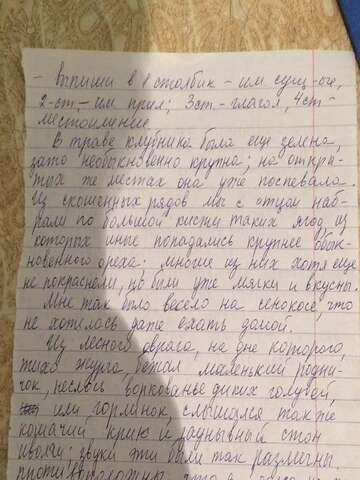 - Выпиши в 1 столбик - им сущ-ое,
2-ст - им прил; 3ст - глагол, 4ст -
местоимение
В траве клубника была еще зелена,
зато необыкновенно крупна; на откры-
тых же местах она уже поспевала
Из скошенных рядов мы с отцом наб-
рали по большой кисти таких ягод, из
которых иные попадались крупнее обык-
новенного ореха; многие из них хотя еще
не покраснели, но были уже мягки и вкусны.
Мне так было весело на сенокосе, что
не хотелось даже ехать домой.
Из лесного оврага, на дне которого,
тихо журча, бежал маленький родни-
чок, неслось воркованье диких голубей,
или горлинок, слышался также
кошачий крик и заунывный стон
иволги; звуки эти были так различны,
противоположны, что я